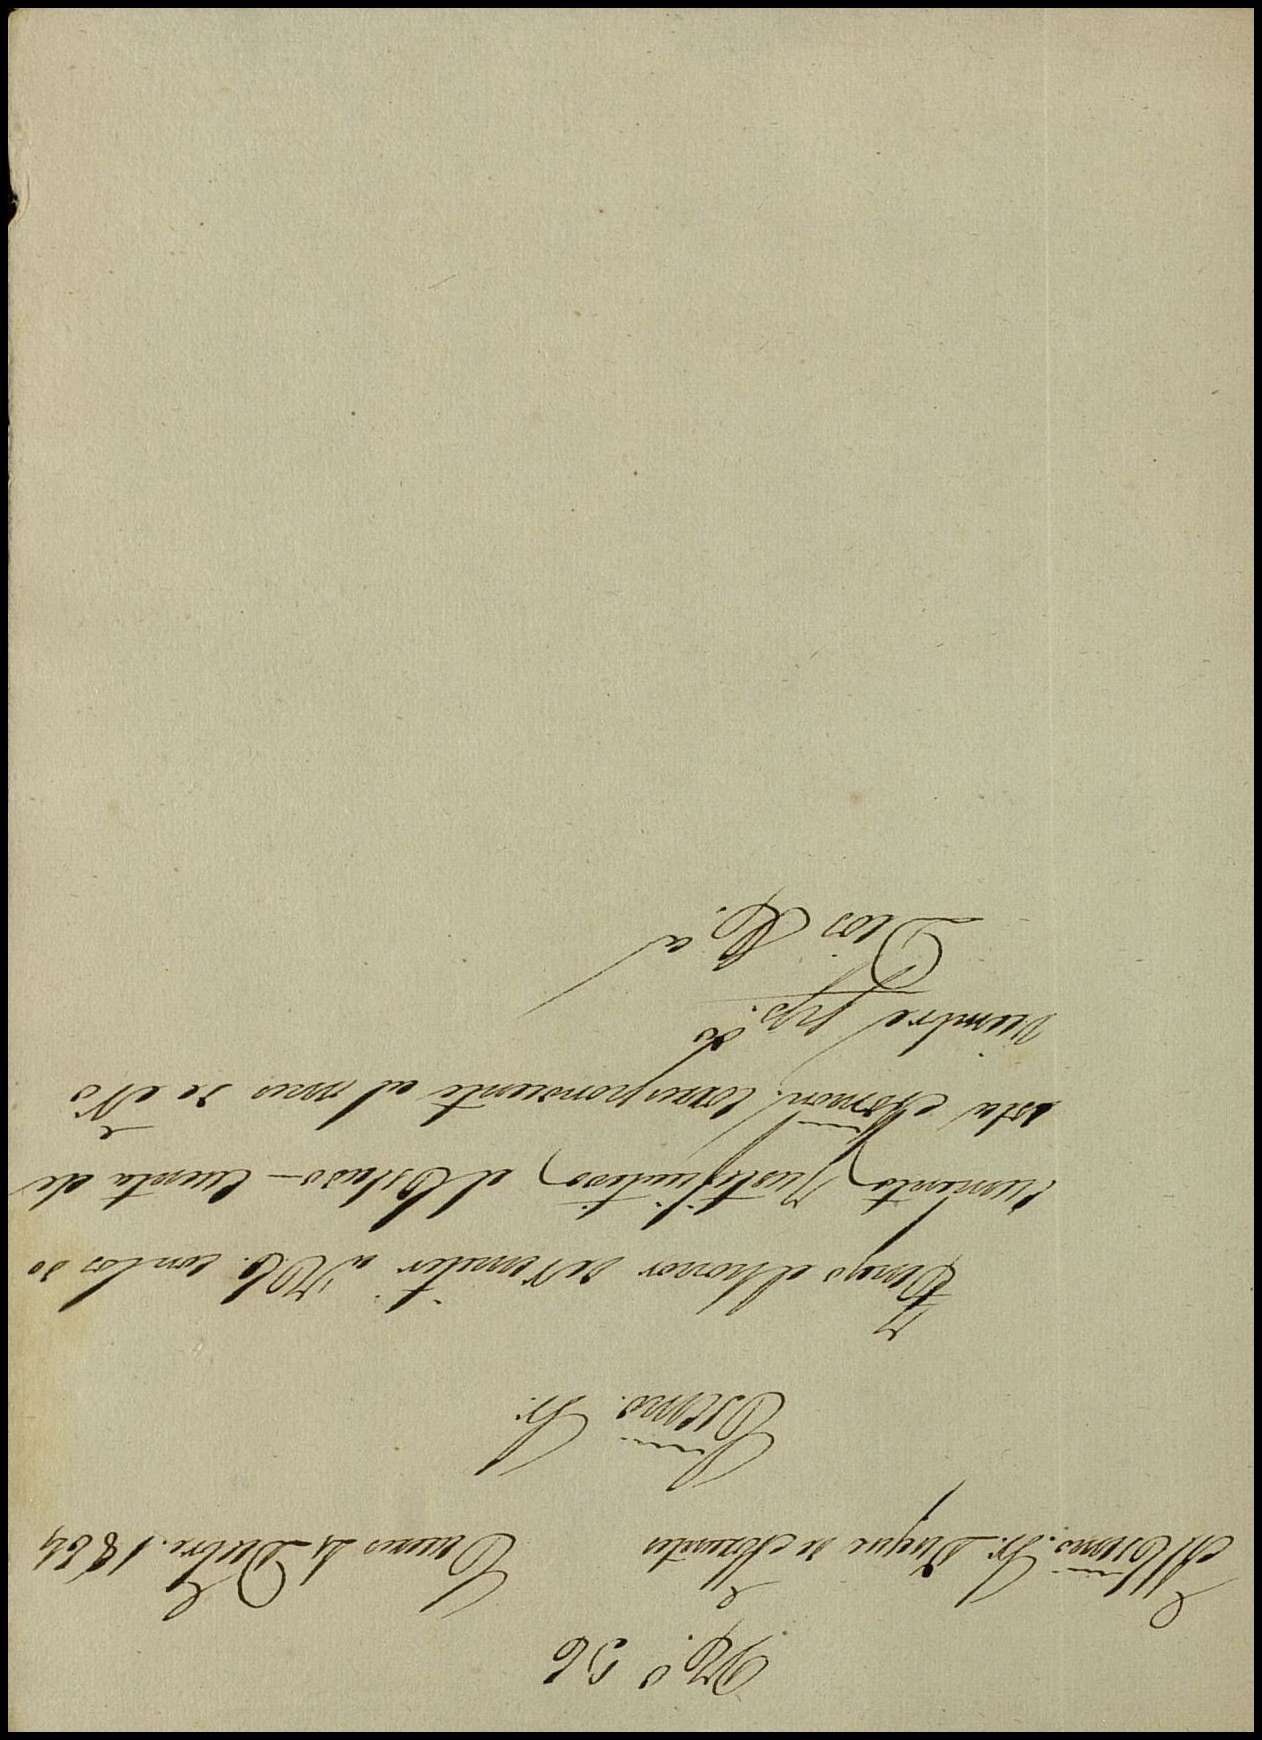 N.º 56
Al Escmo. Sr. Duque de Abrantes Cuenca 4 Dicbre. 1864
Escmo. Sr.
Tengo el honor de remitir a V.E. con los do
cumentos justificativos el Estado-Cuenta de
esta Admon. correspondiente al mes de No
viembre ppdo.
Dios &.a